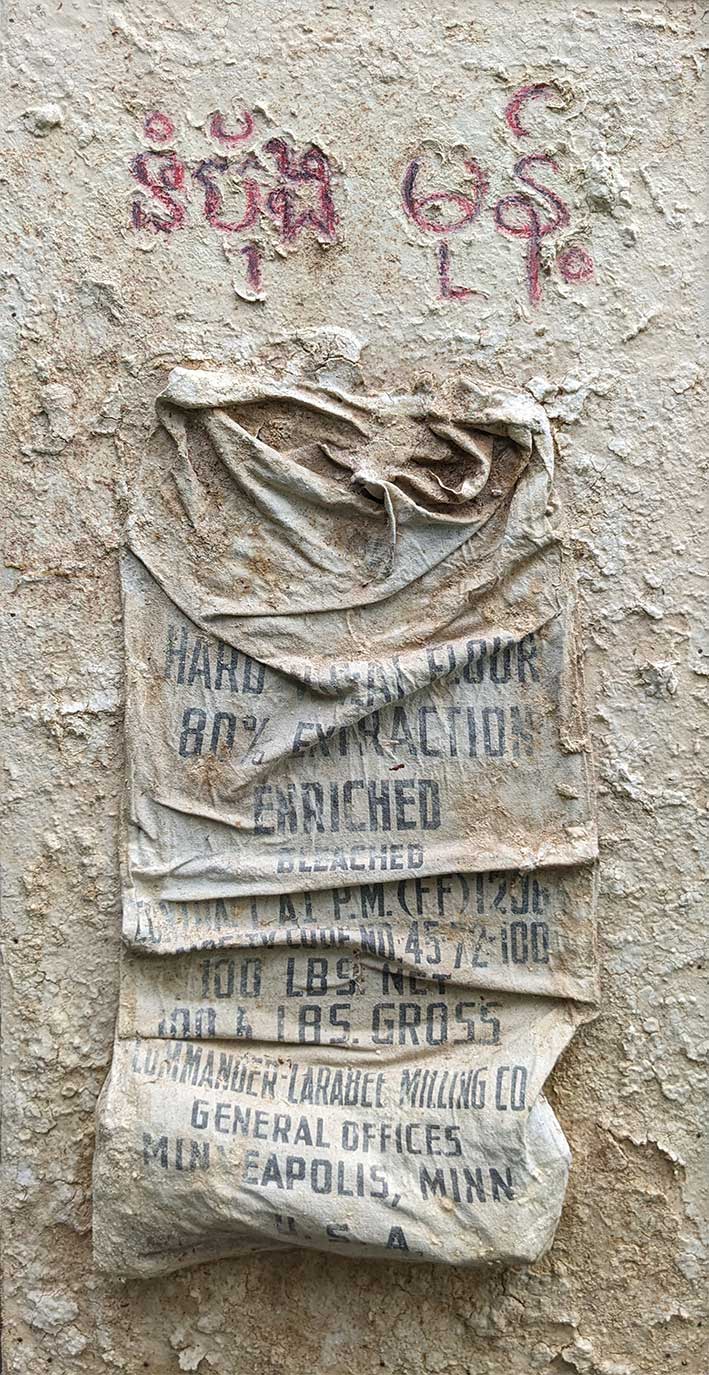 នំប៉័ង မုန့်
HARD WHEAT FLOUR
80% EXTRACTION
ENRICHED
BLEACHED
P.M.(FF)
CODE NO. 45-72-100
100 LBS. NET
LBS. GROSS
COMMANDER-LARABEE MILLING CO.
GENERAL OFFICES
MINNEAPOLIS, MINN
U. S. A.